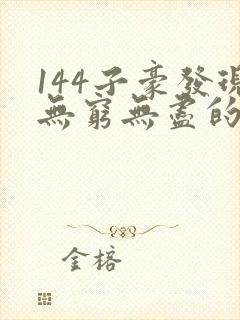 144子豪發現
無窮無盡的
金榕